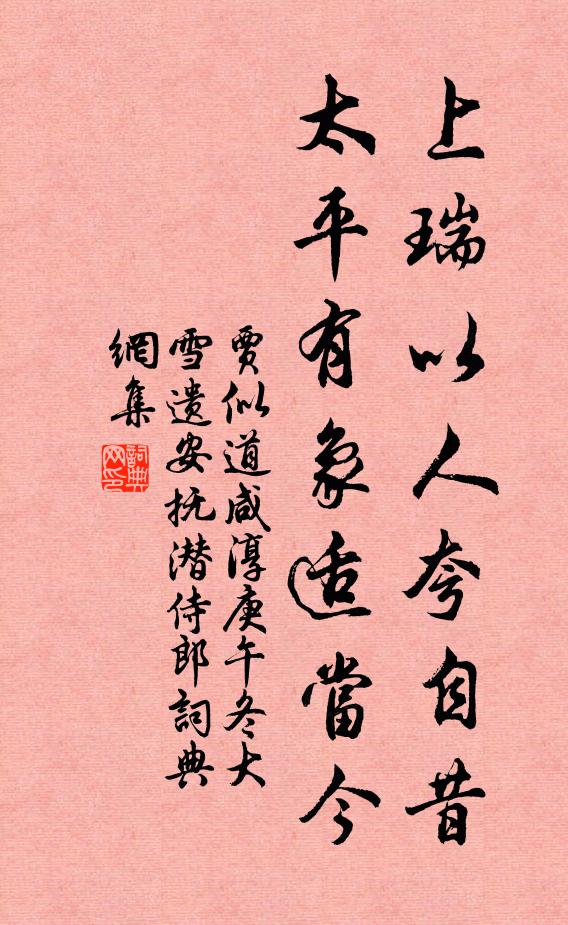 上瑞以人夸自昔
太平有象适當今
賈似道咸淳庚午冬大
雪遗安抚潜侍郎詞典
網集
詞典
网印